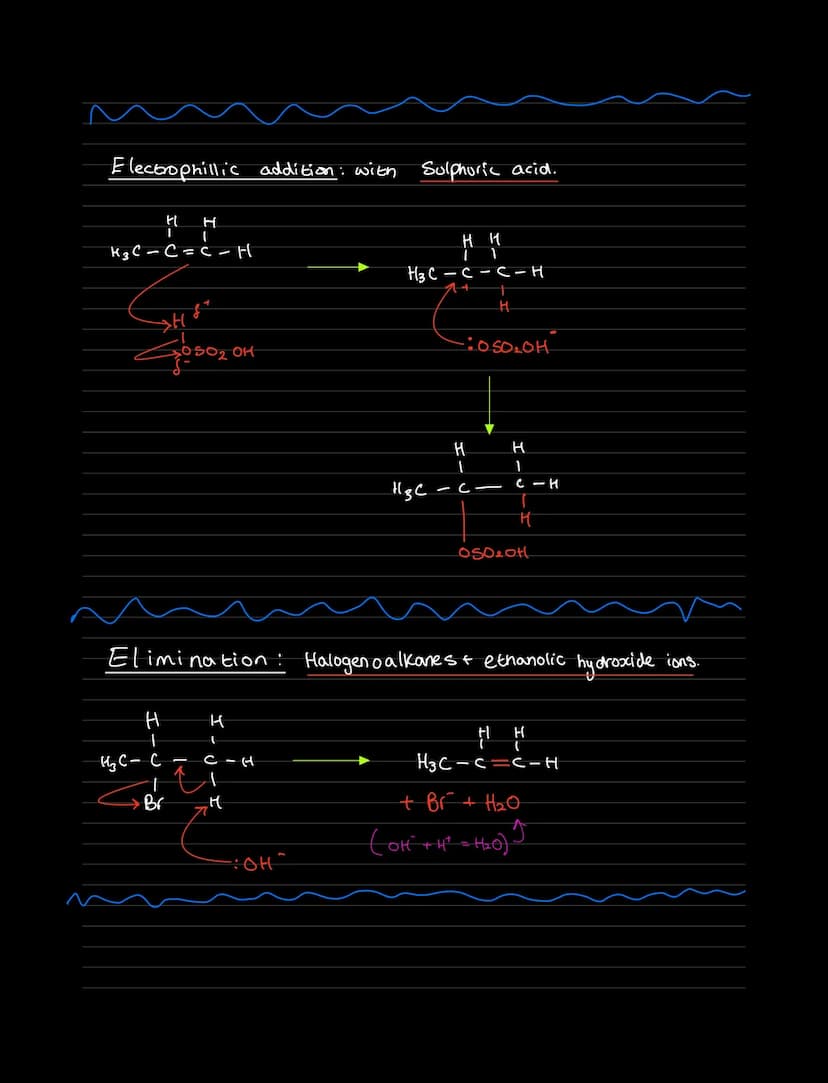 Electrophillic addition: with Sulphuric acid.
H H
H3C - C = C - H
H δ+
OSO2OH
δ-
H H
H3C - C - C - H
+
H
:OSO2OH-
H H
H3C - C - C - H
H
OSO2OH
Elimination: Halogenoalkanes + ethanolic hydroxide ions.
H H
H3C - C - C - H
Br H
:OH-
H H
H3C - C = C - H
+ Br- + H2O
(OH- + H+ = H2O)